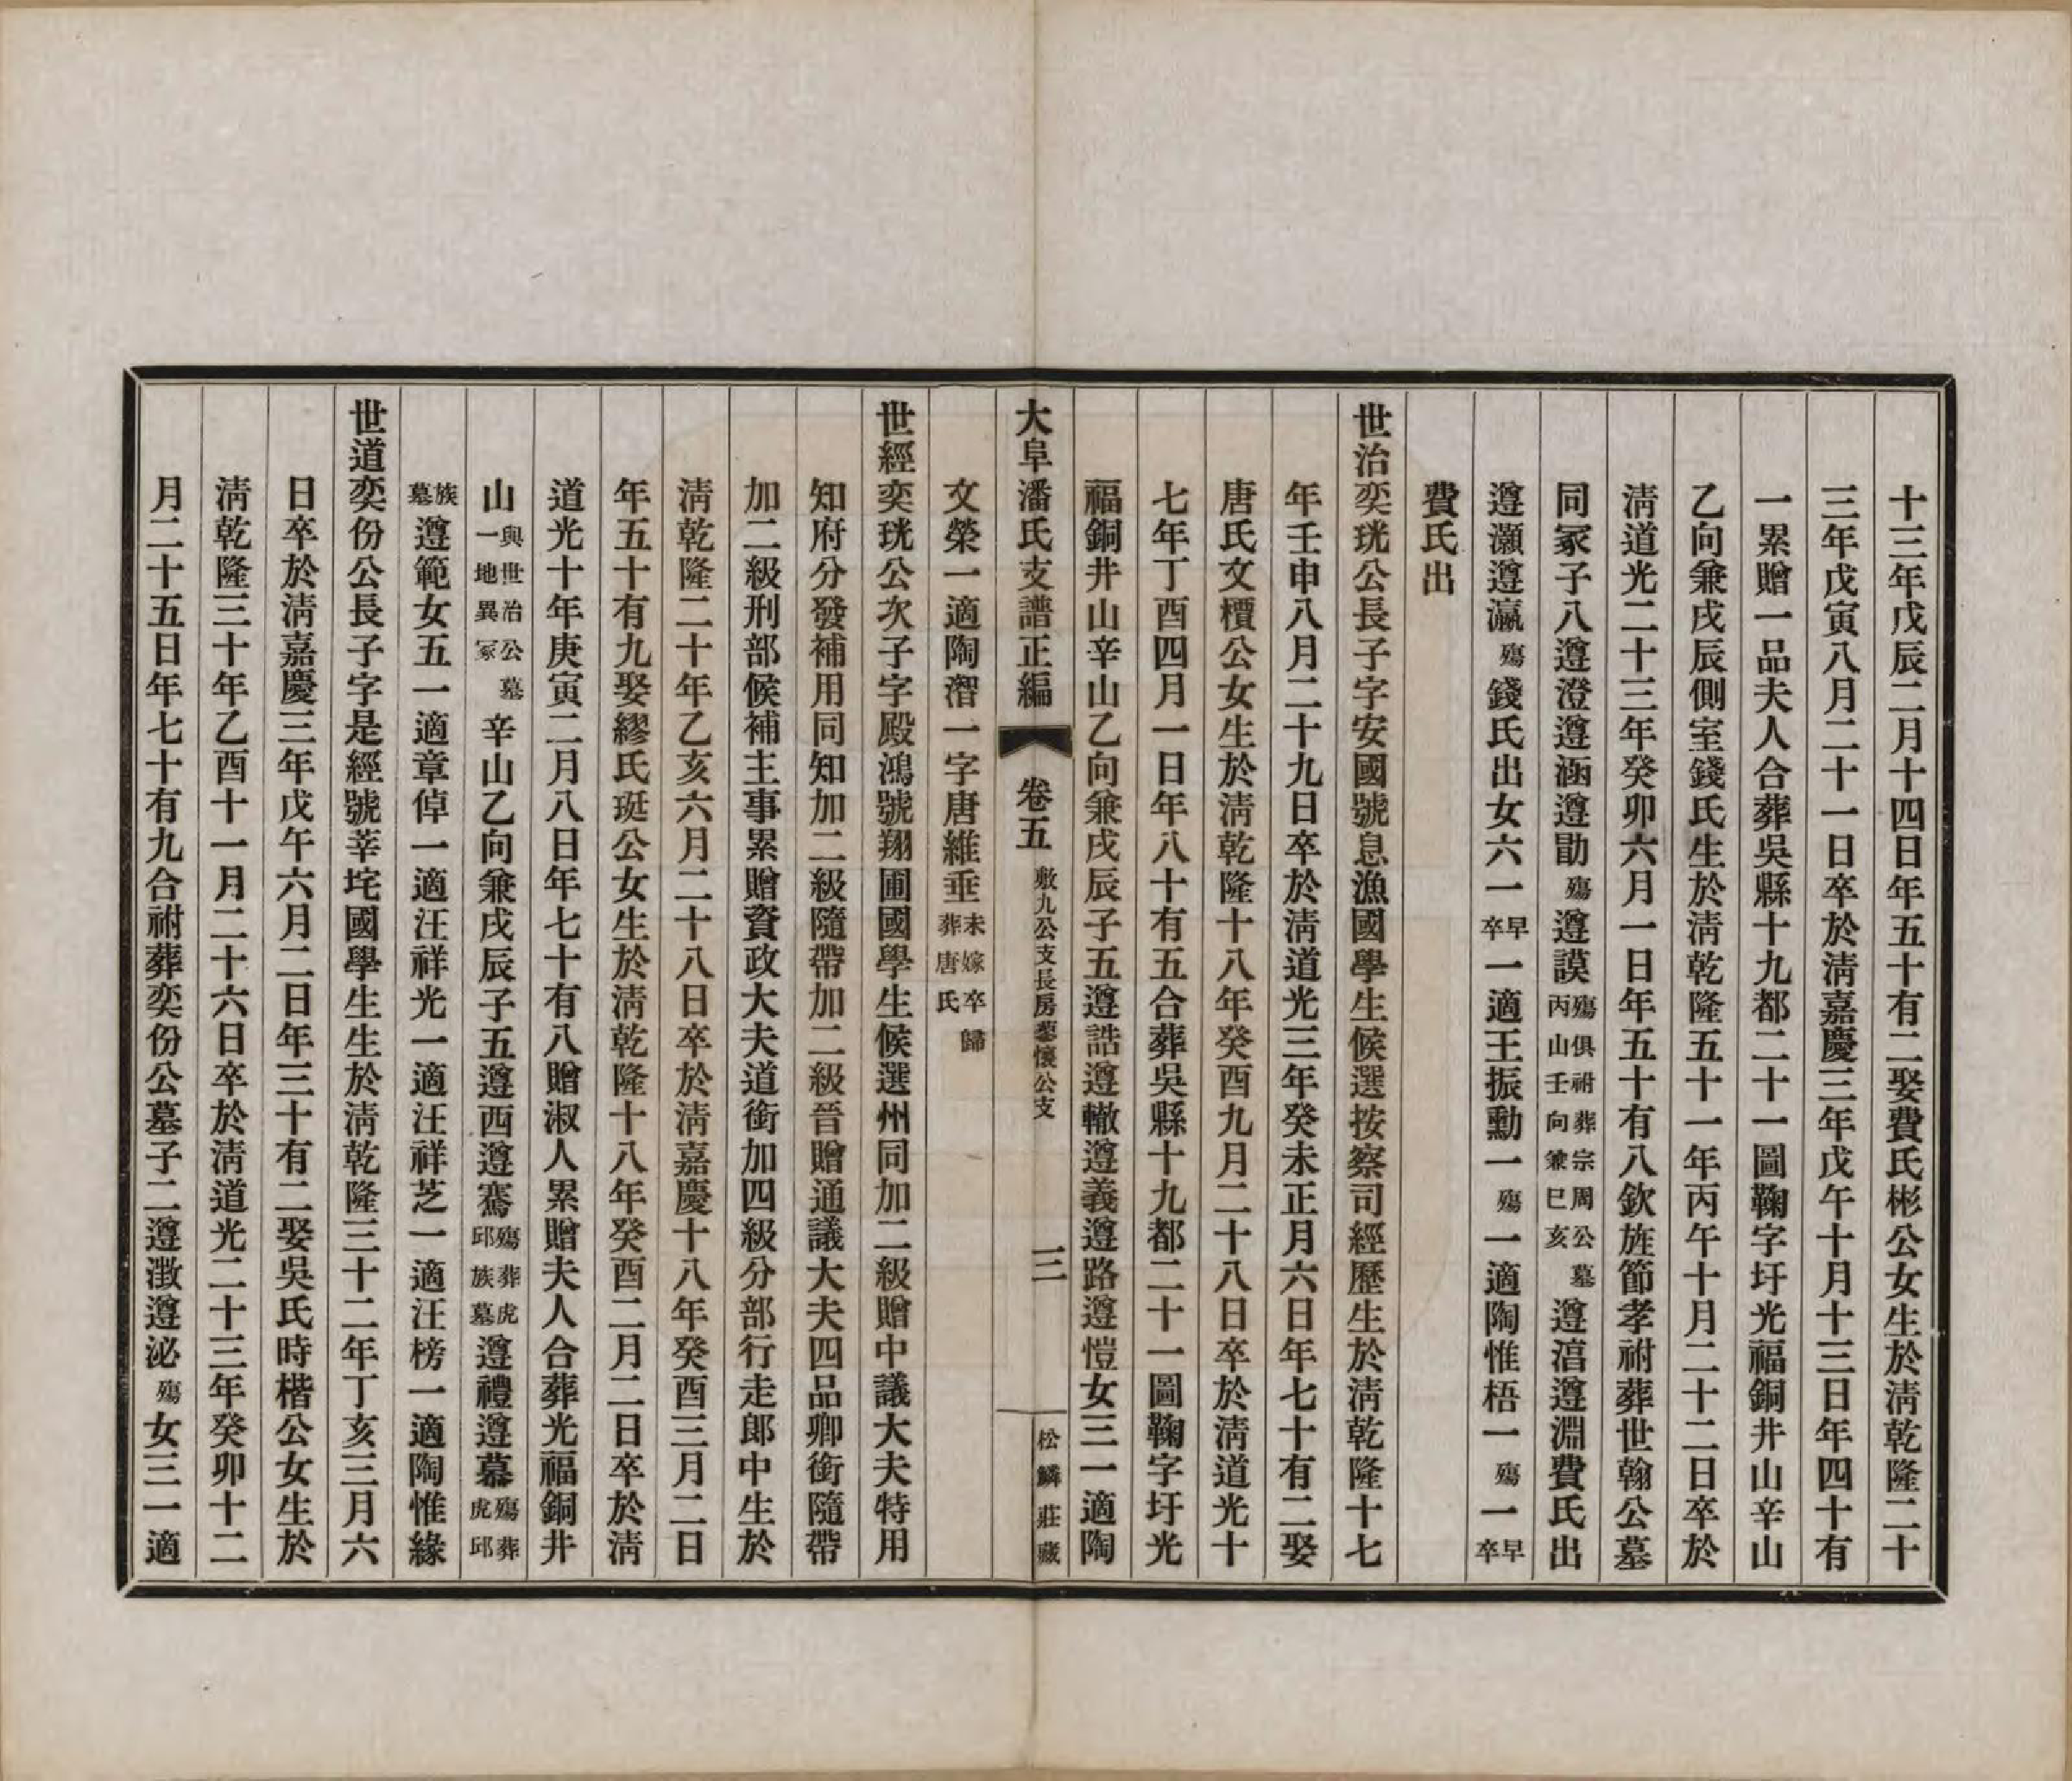 十三年戊辰二月十四日年五十有二娶費氏彬公女生於清乾隆二十
三年戊寅八月二十一日卒於清嘉慶三年戊午十月十三日年四十有
一累贈一品夫人合葬吳縣十九都二十一圖鞠字圩光福銅井山辛山
乙向兼戌辰側室錢氏生於清乾隆五十一年丙午十月二十二日卒於
清道光二十三年癸卯六月一日年五十有八欽旌節孝祔葬世翰公墓
同冢子八遵澄遵涵遵勖殤遵謨殤俱祔葬宗周公墓丙山壬向兼巳亥遵涫遵淵費氏出
遵灝遵瀛殤錢氏出女六一早卒一適王振勳一殤一適陶惟梧一殤一早卒
費氏出
世治奕珖公長子字安國號息漁國學生候選按察司經歷生於清乾隆十七
年壬申八月二十九日卒於清道光三年癸未正月六日年七十有二娶
唐氏文櫝公女生於清乾隆十八年癸酉九月二十八日卒於清道光十
七年丁酉四月一日年八十有五合葬吳縣十九都二十一圖鞠字圩光
福銅井山辛山乙向兼戌辰子五遵誥遵轍遵義遵路遵愷女三一適陶
大阜潘氏支譜正編 卷五 敷九公支長房蓼懷公支 三 松鱗莊藏
文榮一適陶潪一字唐維垂未嫁卒歸葬唐氏
世經奕珖公次子字殿鴻號翔圃國學生候選州同加二級贈中議大夫特用
知府分發補用同知加二級隨帶加二級晉贈通議大夫四品卿銜隨帶
加二級刑部候補主事累贈資政大夫道銜加四級分部行走郎中生於
清乾隆二十年乙亥六月二十八日卒於清嘉慶十八年癸酉三月二日
年五十有九娶繆氏珽公女生於清乾隆十八年癸酉二月二日卒於清
道光十年庚寅二月八日年七十有八贈淑人累贈夫人合葬光福銅井
山與世治公墓一地異冢辛山乙向兼戌辰子五遵西遵騫殤葬虎邱族墓遵禮遵慕殤葬虎邱
族墓遵範女五一適章倬一適汪祥光一適汪祥芝一適汪榜一適陶惟緣
世道奕份公長子字是經號莘垞國學生生於清乾隆三十二年丁亥三月六
日卒於清嘉慶三年戊午六月二日年三十有二娶吳氏時楷公女生於
清乾隆三十年乙酉十一月二十六日卒於清道光二十三年癸卯十二
月二十五日年七十有九合祔葬奕份公墓子二遵濲遵泌殤女三一適